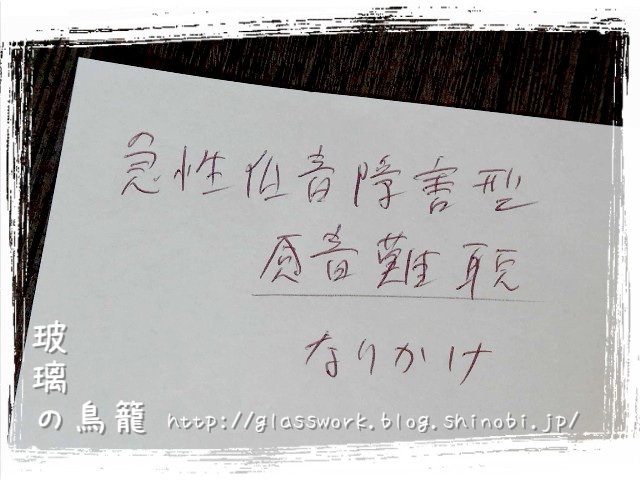 急性低音障害型
感音難聴
なりかけ
玻璃の鳥籠 http://glasswork.blog.shinobi.jp/